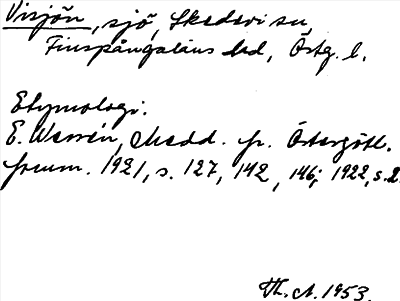 Visjön, sjö, Skedevi sn,
Finspångaläns hd, Östg. l.
Etymologi.
E. Wessén, Medd. fr. Östergötl.
fornm. 1921, s. 127, 142, 146; 1922, s. 2.
Th. A. 1953.